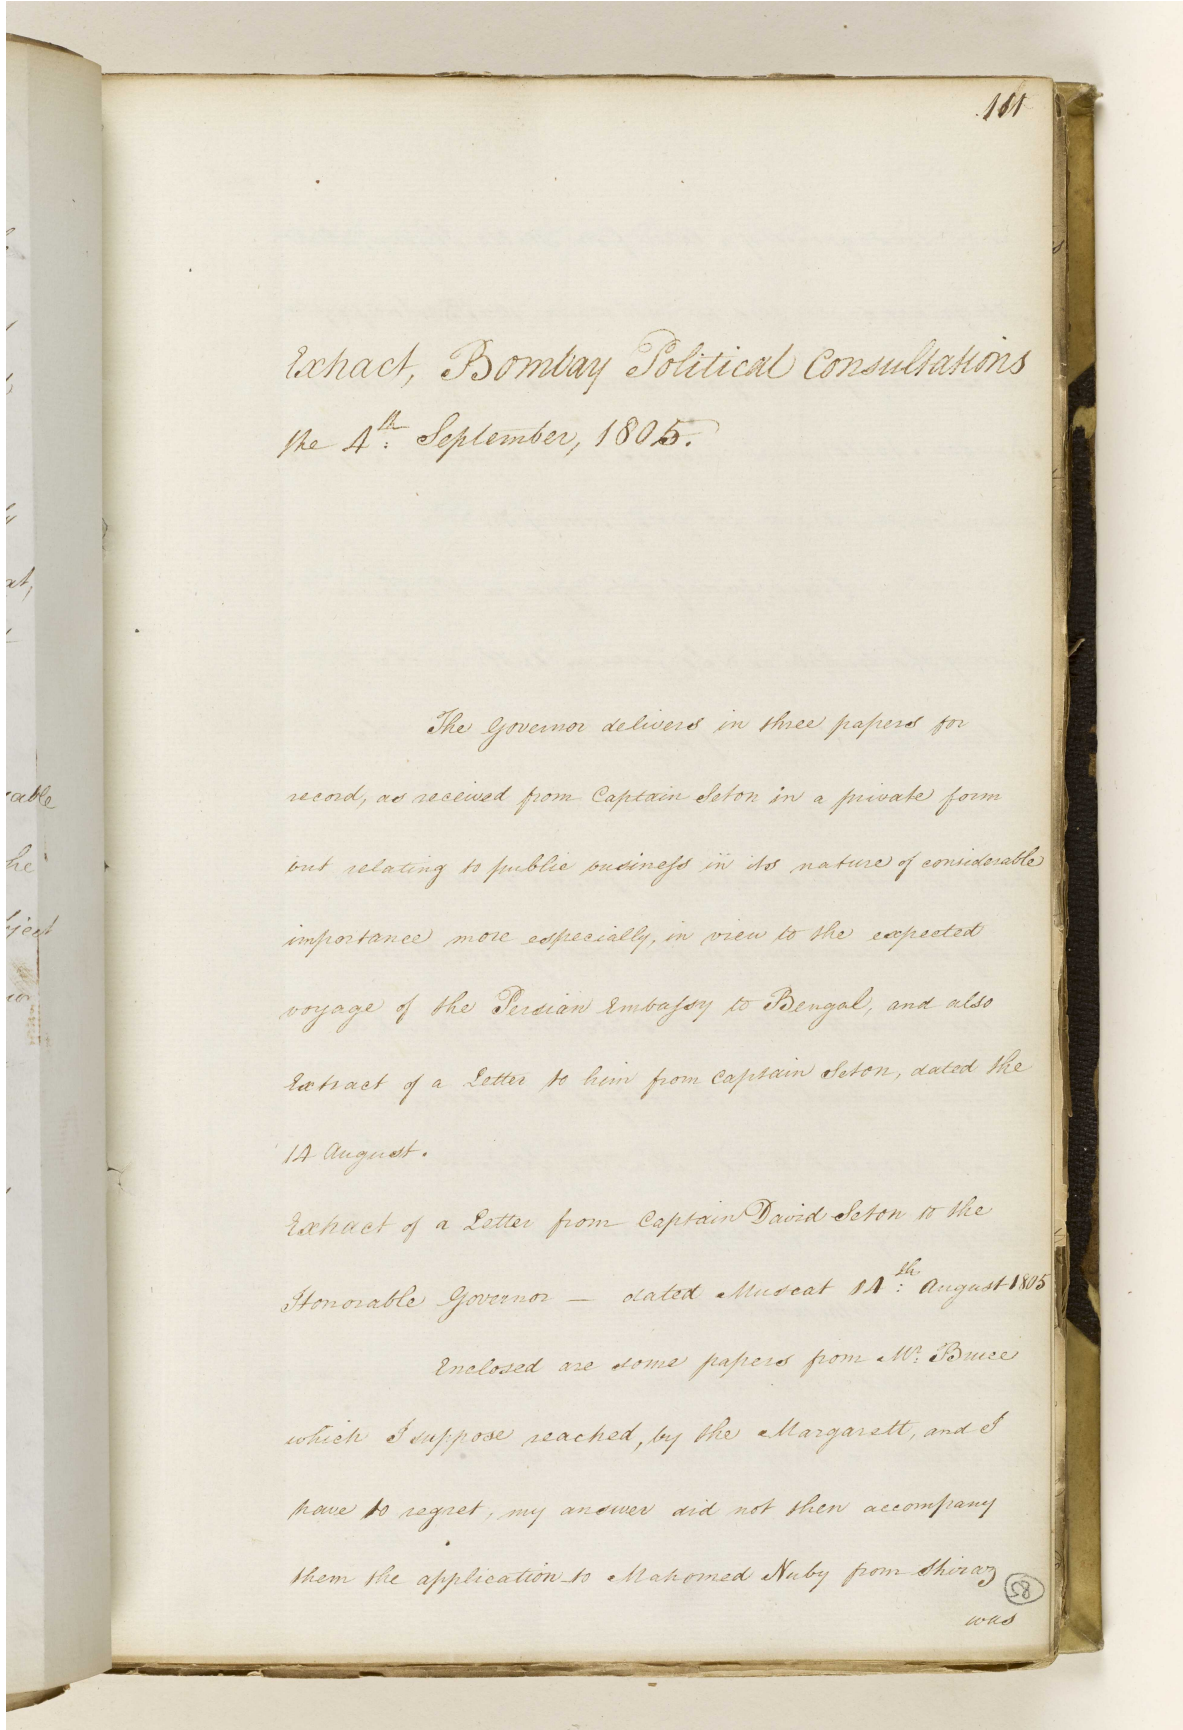 161
Extract, Bombay Political Consultations
the 4th: September, 1805.
The Governor delivers in three papers for
record, as received from Captain Seton in a private form
but relating to public business in its nature of considerable
importance more especially, in view to the expected
voyage of the Persian Embassy to Bengal, and also
Extract of a Letter to him from Captain Seton, dated the
14 August.
Extract of a Letter from Captain David Seton to the
Honorable Governor — dated Muscat 14th: August 1805
Enclosed are some papers from Mr: Bruce
which I suppose reached, by the Margarett, and I
have to regret, my answer did not then accompany
them the application to Mahomed Nuby from Shiraz
85
was
at,
able
he
ject